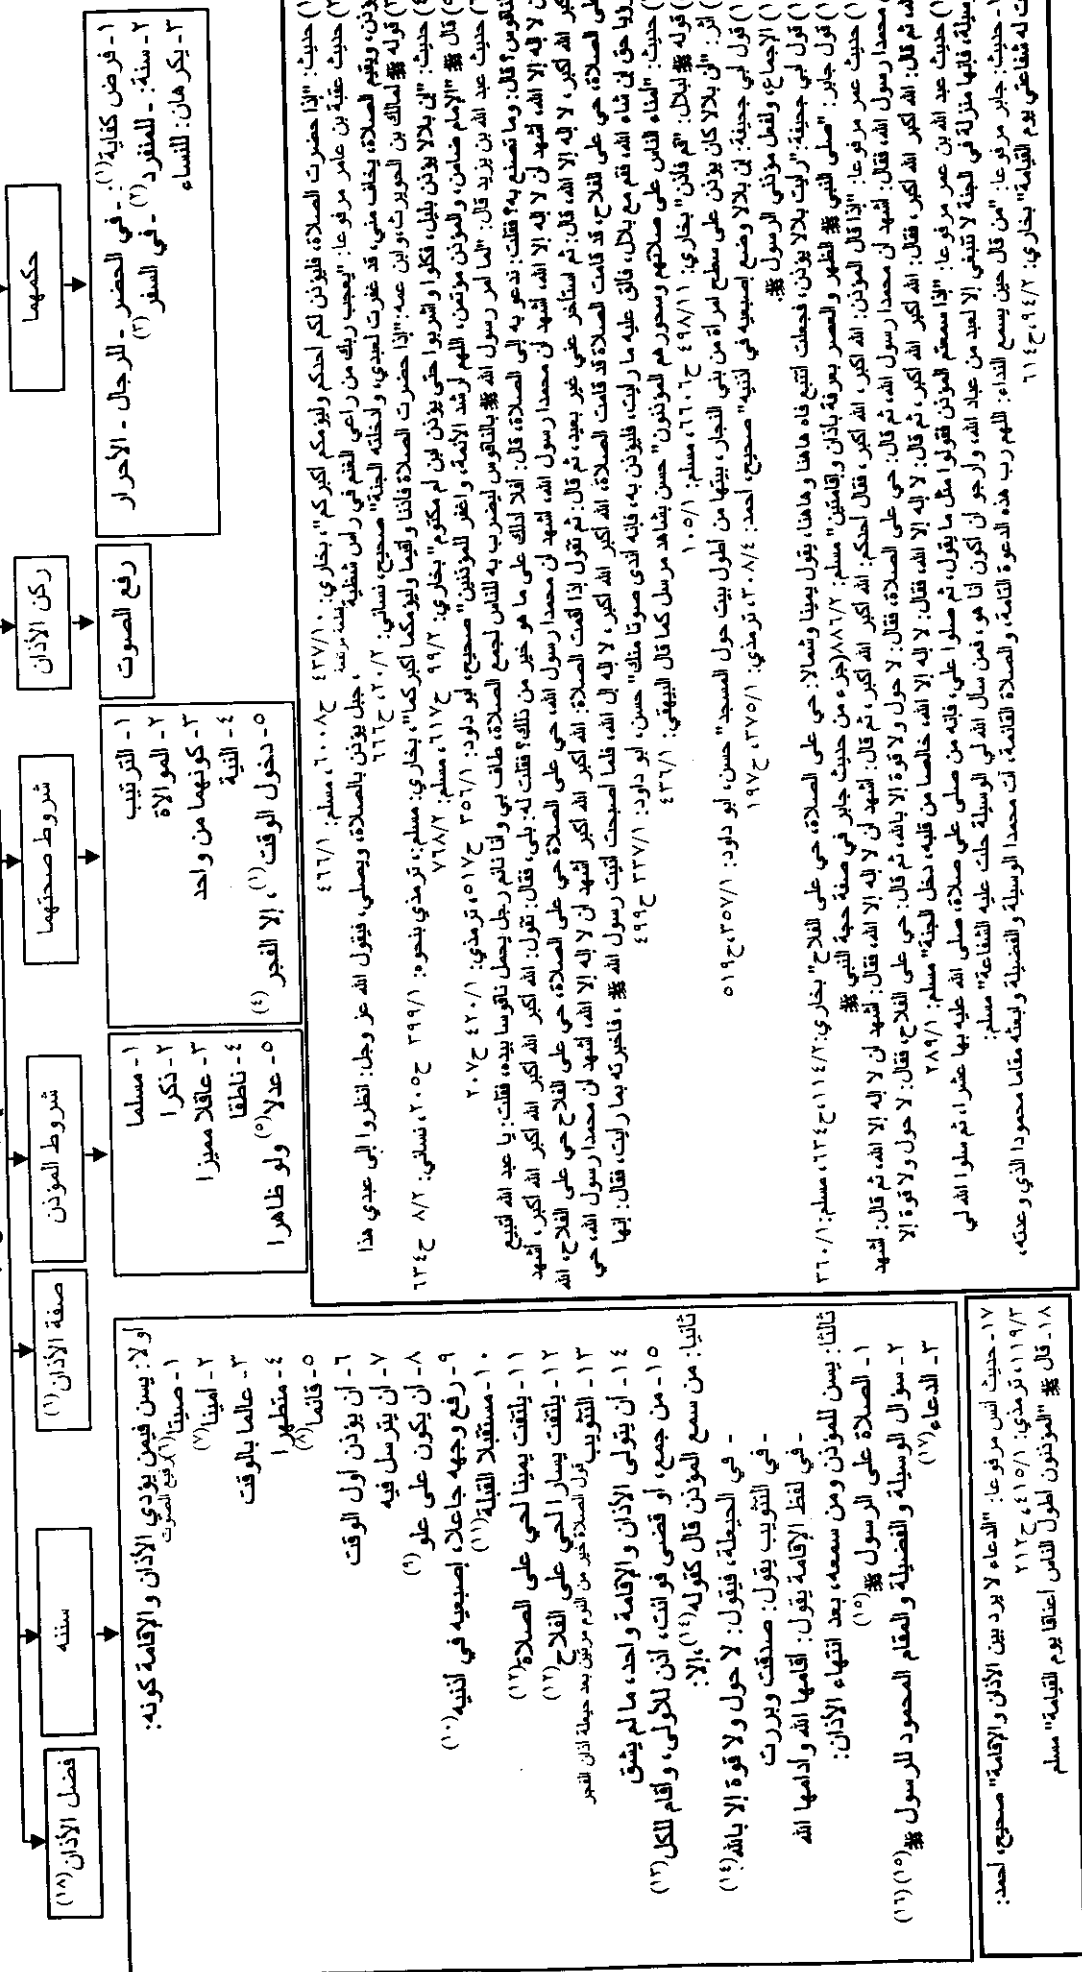 حكمهما
١- فرض كفاية(١): - في الحضر - للرجال - الأحرار
٢- سنة: - للمنفرد(٢) - في السفر(٣)
٣- يكرهان: للنساء
ركن الأذان
رفع الصوت
شروط صحتهما
١- الترتيب
٢- الموالاة
٣- كونهما من واحد
٤- النية
٥- دخول الوقت(١)، إلا الفجر(٤)
شروط المؤذن
١- مسلما
٢- ذكرا
٣- عاقلا مميزا
٤- ناطقا
٥- عدلا(٥) ولو ظاهرا
صفة الأذان(٦)
سننه
فضل الأذان(١٨)
أولا: يسن فيمن يؤدي الأذان والإقامة كونه:
١- صيتا(٦) رفيع الصوت
٢- أمينا(٧)
٣- عالما بالوقت
٤- متطهرا
٥- قائما(٨)
٦- أن يؤذن أول الوقت
٧- أن يترسل فيه
٨- أن يكون على علو(٩)
٩- رفع وجهه جاعلا، إصبعيه في أذنيه(١٠)
١٠- مستقبلا القبلة(١١)
١١- يلتفت يمينا لحي على الصلاة(١٢)
١٢- يلتفت يسارا لحي على الفلاح(١٢)
١٣- التثويب قول الصلاة خير من النوم مرتين بعد حيعلة أذان الفجر
١٤- أن يتولى الأذان والإقامة واحد، ما لم يشق
١٥- من جمع، أو قضى فوائت، أذن للأولى، وأقام للكل(١٣)
ثانيا: من سمع المؤذن قال كقوله(١٤)، إلا:
- في الحيعلة، فيقول: لا حول ولا قوة إلا بالله(١٤)
- في التثويب يقول: صدقت وبررت
- في لفظ الإقامة يقول: أقامها الله وأدامها الله
ثالثا: يسن للمؤذن ومن سمعه، بعد انتهاء الأذان:
١- الصلاة على الرسول ﷺ(١٥)
٢- سؤال الوسيلة والفضيلة والمقام المحمود للرسول ﷺ(١٥)(١٦)
٣- الدعاء(١٧)
حديث: "إذا حضرت الصلاة، فليؤذن لكم أحدكم وليؤمكم أكبركم"، بخاري: ٤٣٧/١٠ ح٦٠٠٨، مسلم: ٤٦٦/١
حديث عقبة بن عامر مرفوعا: "يعجب ربك من راعي الغنم في رأس شظية قطعة مرتفعة، جبل يؤذن بالصلاة، ويصلي، فيقول الله عز وجل: انظروا إلى عبدي هذا
يؤذن، ويقيم الصلاة، يخاف مني، قد غفرت لعبدي، وأدخلته الجنة" صحيح، نسائي: ٢٠/٢، ح٦٦٦
قوله ﷺ لمالك بن الحويرث، وابن عمه: "إذا حضرت الصلاة فأذنا وأقيما وليؤمكما أكبركما"، بخاري: مسلم:، ترمذي بنحوه: ٣٩٩/١ ح٢٠٥، نسائي: ٨/٢ ح٦٣٤
حديث: "إن بلالا يؤذن بليل، فكلوا واشربوا حتى يؤذن ابن أم مكتوم" بخاري: ٩٩/٢ ح٦١٧، مسلم: ٧٦٨/٢
قال ﷺ "الإمام ضامن، والمؤذن مؤتمن، اللهم أرشد الأئمة، واغفر للمؤذنين" صحيح، أبو داود: ٣٥٦/١ ح٥١٧، ترمذي: ٤٢٠/١ ح٢٠٧
حديث عبد الله بن يزيد قال: "لما أمر رسول الله ﷺ بالناقوس ليضرب به للناس لجمع الصلاة، طاف بي وأنا نائم رجل يحمل ناقوسا بيده، فقلت: يا عبد الله أتبيع
الناقوس؟ قال: وما تصنع به؟ فقلت: ندعو به إلى الصلاة، قال: أفلا أدلك على ما هو خير من ذلك؟ فقلت له: بلى، فقال: تقول: الله أكبر الله أكبر الله أكبر الله أكبر، أشهد
رؤيا حق إن شاء الله، فقم مع بلال، فألق عليه ما رأيت، فليؤذن به، فإنه أندى صوتا منك" حسن، أبو داود: ٣٣٧/١ ح٤٩٩
حديث: "أمناء الناس على صلاتهم وسحورهم المؤذنون" حسن بشاهد مرسل كما قال البيهقي: ٤٣٦/١
قوله ﷺ لبلال: "قم فأذن" بخاري: ٤٩٨/١١ ح٦٦٠٦، مسلم: ١٠٥/١
أثر: "أن بلالا كان يؤذن على سطح امرأة من بني النجار، بيتها من أطول بيت حول المسجد" حسن، أبو داود: ٣٥٧/١، ح٥١٩
قول أبي جحيفة: إن بلالا وضع إصبعيه في أذنيه" صحيح، أحمد: ٣٠٨/٤، ترمذي: ٣٧٥/١، ح١٩٧
الإجماع، ولفعل مؤذني الرسول ﷺ
قول أبي جحيفة: "رأيت بلالا يؤذن، فجعلت أتتبع فاه هاهنا وهاهنا، يقول يمينا وشمالا: حي على الصلاة، حي على الفلاح" بخاري: ١١٤/٢، ح٦٣٤، مسلم: ٣٦٠/١
قول جابر: "صلى النبي ﷺ الظهر والعصر بعرفة بأذان وإقامتين" مسلم: ٨٨٦/٢ (جزء من حديث جابر في صفة حجة النبي ﷺ
حديث عمر مرفوعا: "إذا قال المؤذن: الله أكبر، الله أكبر، فقال أحدكم: الله أكبر الله أكبر، ثم قال: أشهد أن لا إله إلا الله، فقال: أشهد أن لا إله إلا الله، ثم قال: أشهد
أن محمدا رسول الله، فقال: أشهد أن محمدا رسول الله، ثم قال: حي على الصلاة، فقال: لا حول ولا قوة إلا بالله، ثم قال: حي على الفلاح، فقال: لا حول ولا قوة إلا
بالله، ثم قال: الله أكبر الله أكبر، فقال: الله أكبر الله أكبر، ثم قال: لا إله إلا الله، فقال: لا إله إلا الله، خالصا من قلبه، دخل الجنة" مسلم: ٢٨٩/١
حديث عبد الله بن عمر مرفوعا: "إذا سمعتم المؤذن فقولوا مثل ما يقول، ثم صلوا علي، فإنه من صلى علي صلاة، صلى الله عليه بها عشرا، ثم سلوا الله لي
الوسيلة، فإنها منزلة في الجنة لا تنبغي إلا لعبد من عباد الله، وأرجو أن أكون أنا هو، فمن سأل الله لي الوسيلة حلت عليه الشفاعة" مسلم:
حديث: جابر مرفوعا: "من قال حين يسمع النداء: اللهم رب هذه الدعوة التامة، والصلاة القائمة، آت محمدا الوسيلة والفضيلة وابعثه مقاما محمودا الذي وعدته،
حلت له شفاعتي يوم القيامة" بخاري: ٩٤/٢، ح٦١٤
١٧- حديث أنس مرفوعا: "الدعاء لا يرد بين الأذان والإقامة" صحيح، أحمد:
١١٩/٣، ترمذي: ٤١٥/١، ح٢١٢
١٨- قال ﷺ "المؤذنون أطول الناس أعناقا يوم القيامة" مسلم